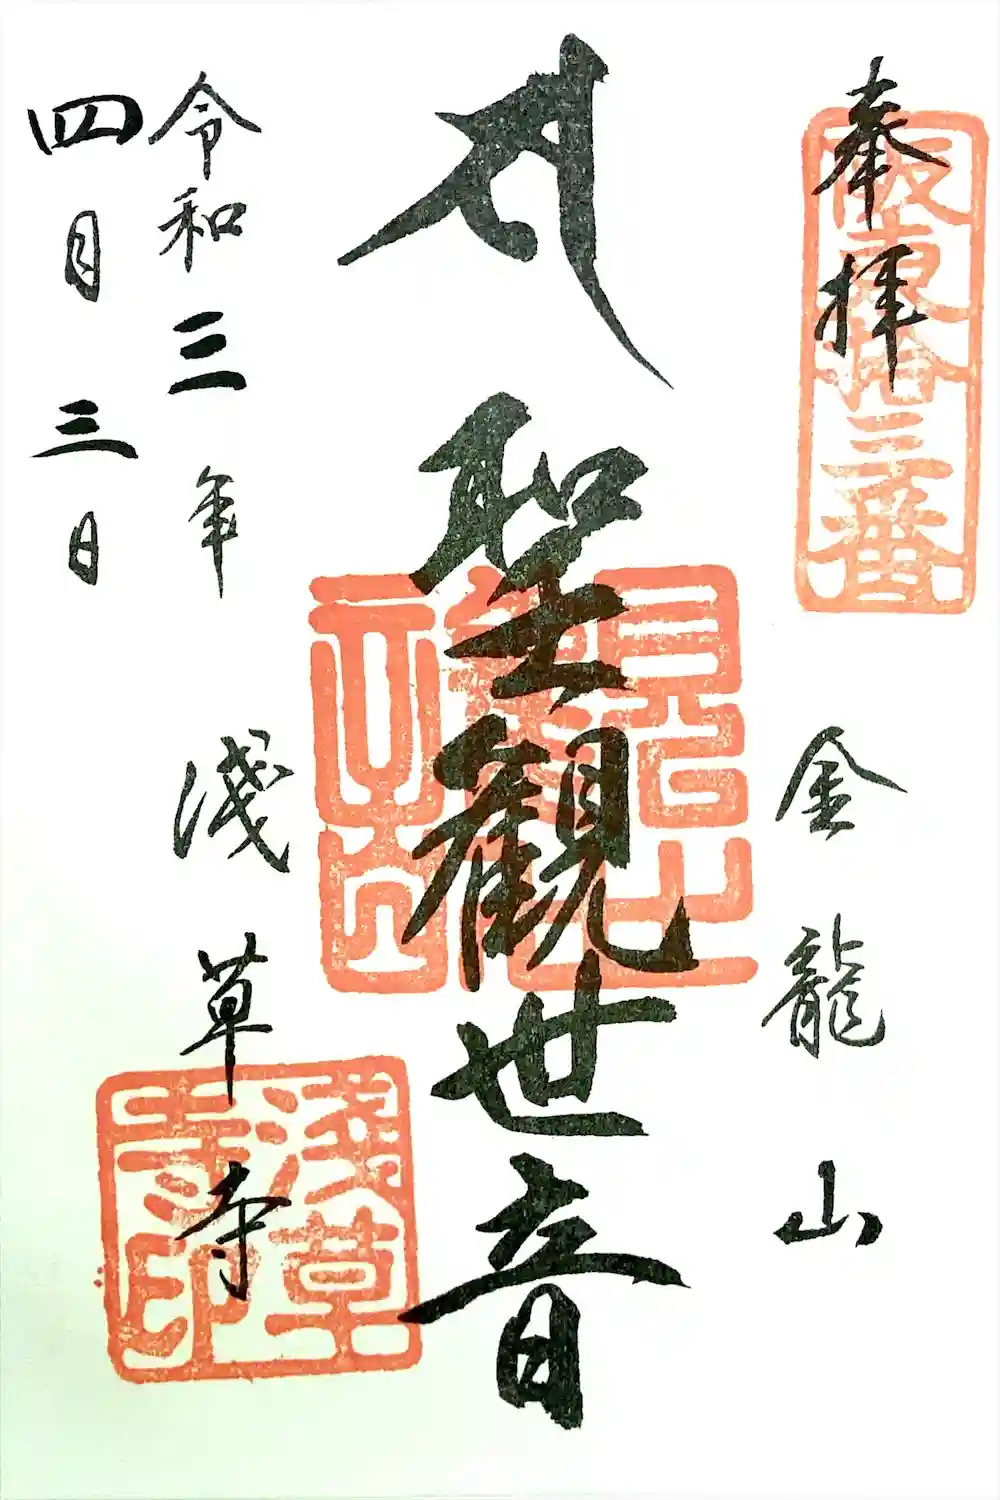 奉拝
坂東拾三番
金龍山
聖観世音
令和三年
四月三日
淺草寺
淺草寺印